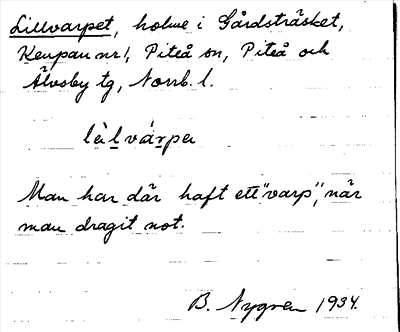 Lillvarpet, holme i Gårdsträsket,
Keupan nr 1, Piteå sn, Piteå och
Älvsby tg, Norrb. l.
lìlvárpɐ
Man har där haft ett "varp", när
man dragit not.
B. Nygren 1934.